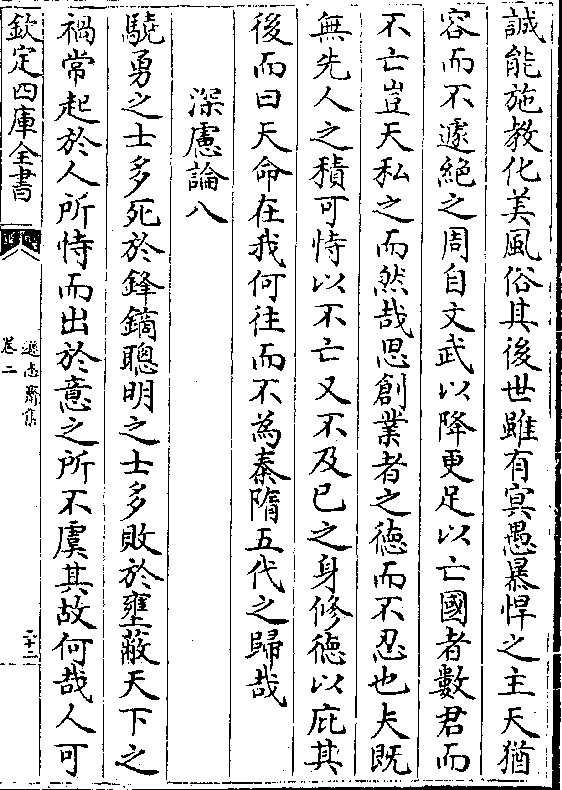 誠能施教化美風俗其後世雖有冥愚暴悍之主天猶
容而不遽絕之周自文武以降更足以亡國者數君而
不亡豈天私之而然哉思創業者之徳而不忍也夫既
無先人之積可恃以不亡又不及已之身修徳以庇其
後而曰天命在我何往而不為秦隋五代之歸哉
深慮論八
驍勇之士多死於鋒鏑聰明之士多敗於壅蔽天下之
禍常起於人所恃而出於意之所不虞其故何哉人可
欽定四庫全書
遜志齋集
卷二
二十二